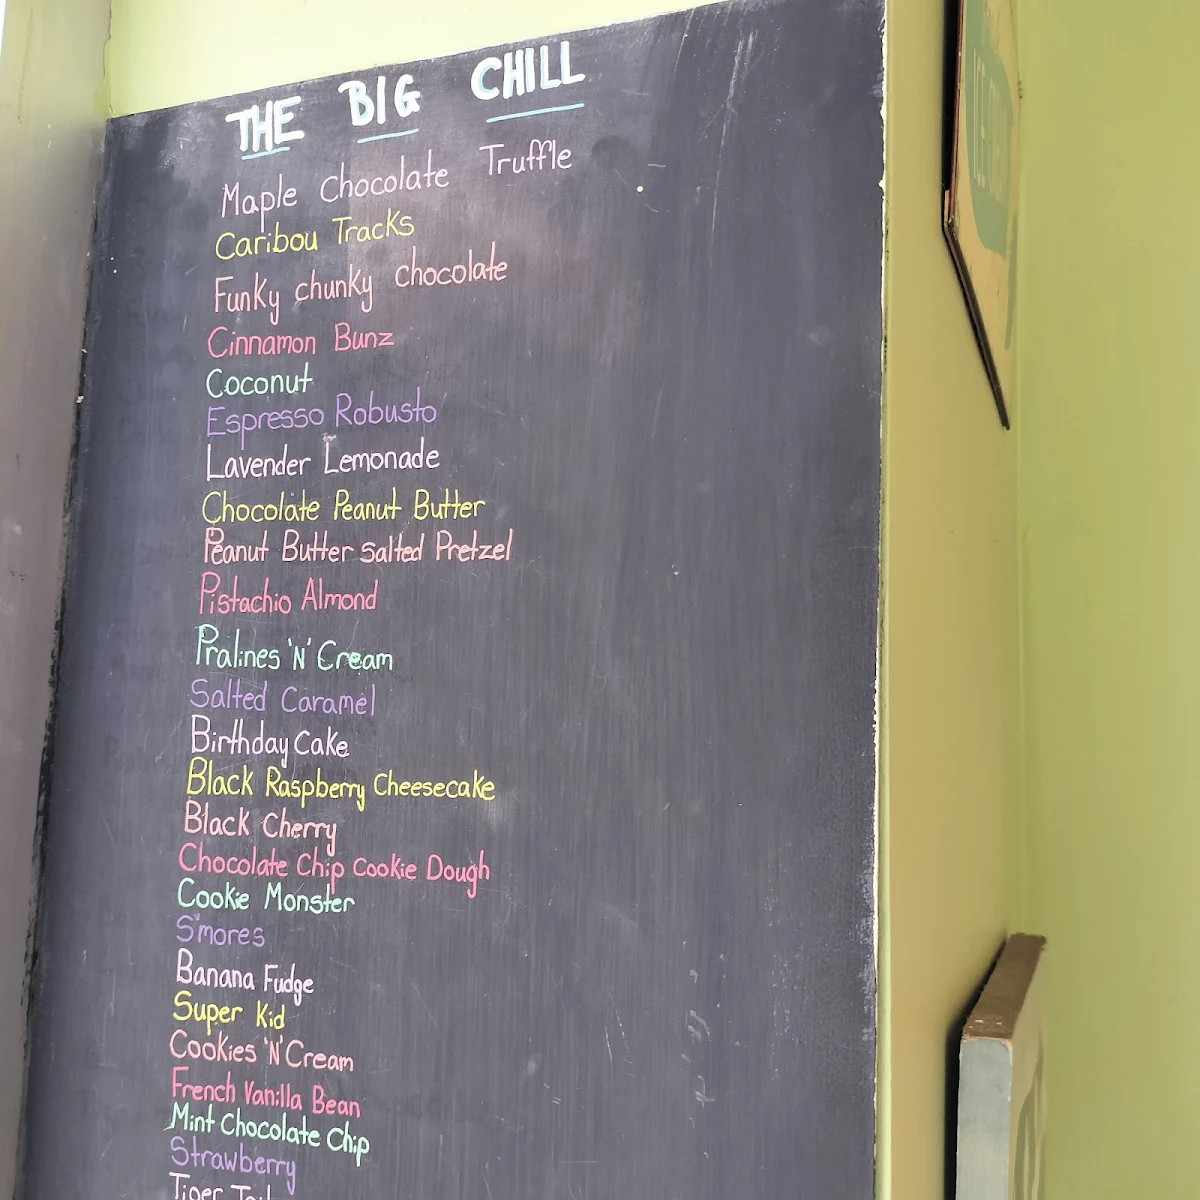 THE BIG CHILL
Maple Chocolate Truffle
Caribou Tracks
Funky chunky chocolate
Cinnamon Bunz
Coconut
Espresso Robusto
Lavender Lemonade
Chocolate Peanut Butter
Peanut Butter Salted Pretzel
Pistachio Almond
Pralines 'N' Cream
Salted Caramel
Birthday Cake
Black Raspberry Cheesecake
Black Cherry
Chocolate Chip Cookie Dough
Cookie Monster
S'mores
Banana Fudge
Super Kid
Cookies 'N' Cream
French Vanilla Bean
Mint Chocolate Chip
Strawberry
Tiger Tail